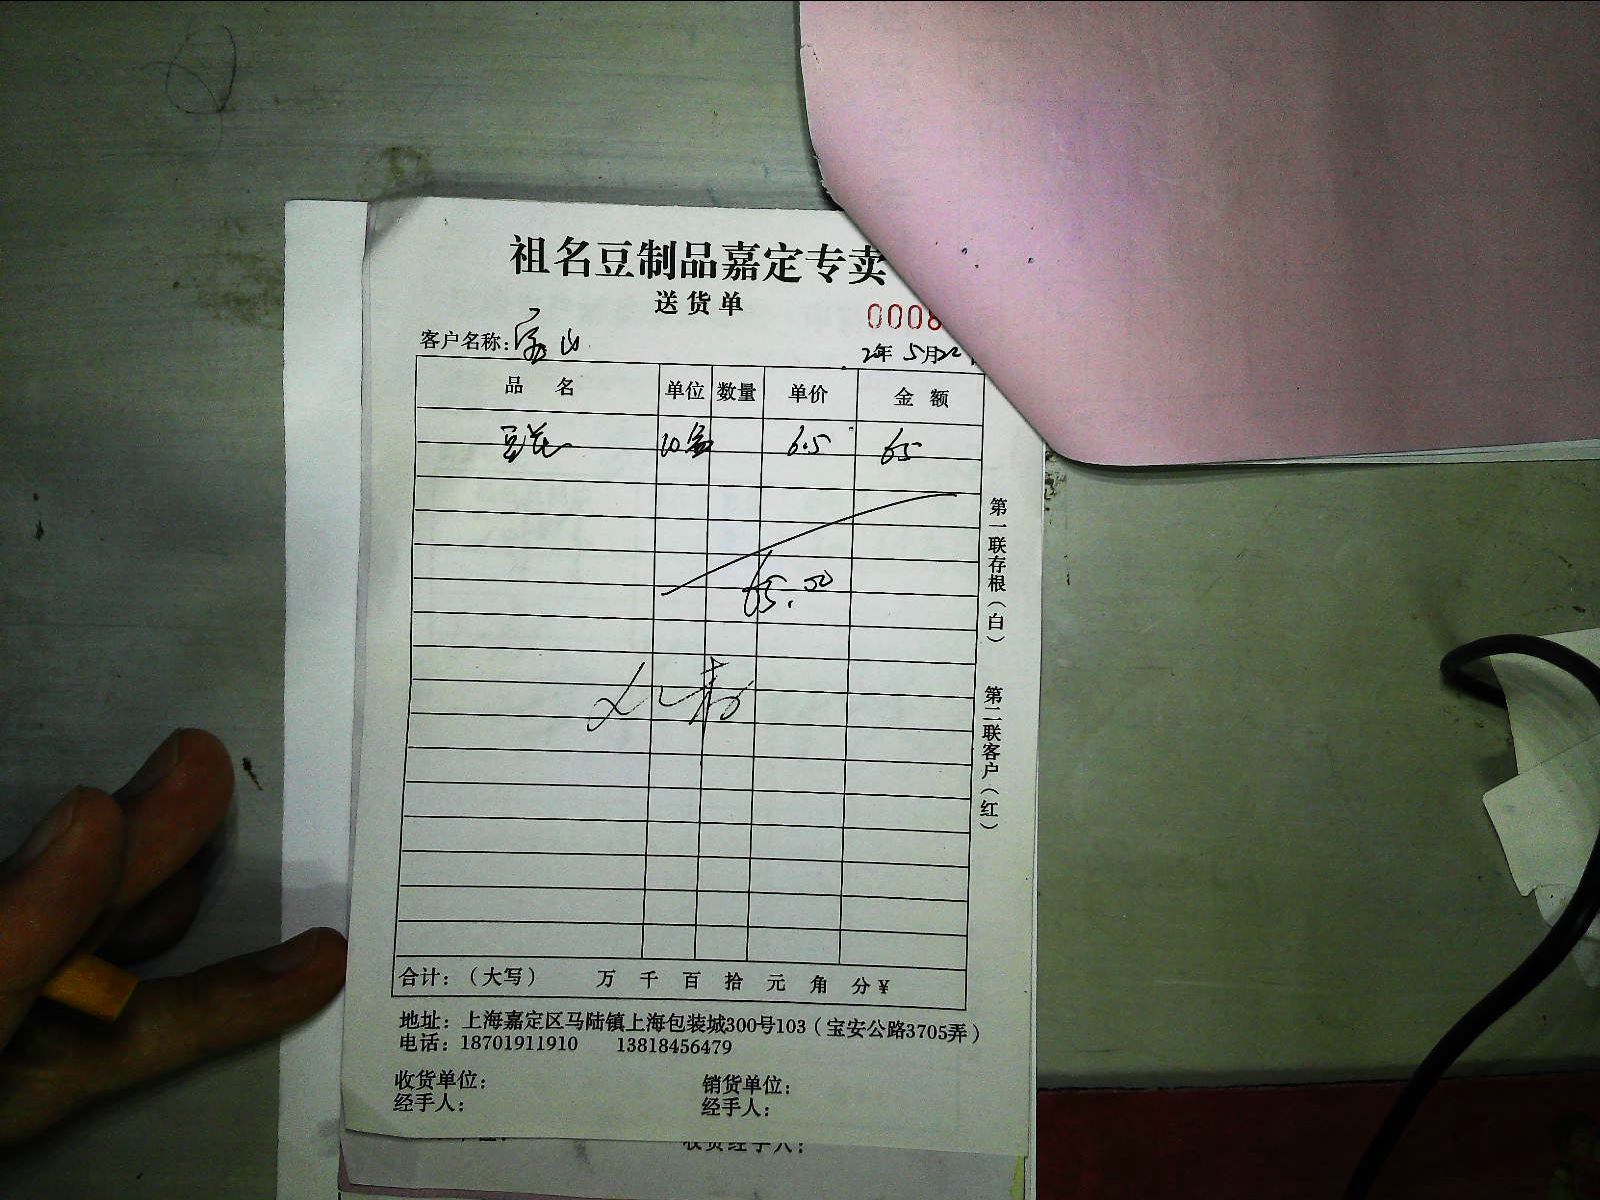 祖名豆制品嘉定专卖
送货单
0008
客户名称：宝山
2年 5月22
品 名 单位 数量 单价 金 额
豆花 10盒 6.5 65
65.00
第一联存根（白）
第二联客户（红）
合计：（大写） 万 千 百 拾 元 角 分 ¥
地址：上海嘉定区马陆镇上海包装城300号103（宝安公路3705弄）
电话：18701911910 13818456479
收货单位： 销货单位：
经手人： 经手人：
收货经手人：